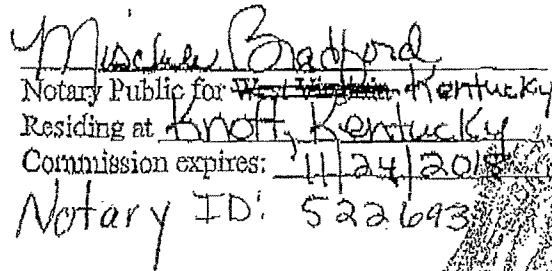 Bradford
Notary Public for West Virginia Kentucky
Residing at Knott, Kentucky
Commission expires: 11/24/2018
Notary ID: 522693